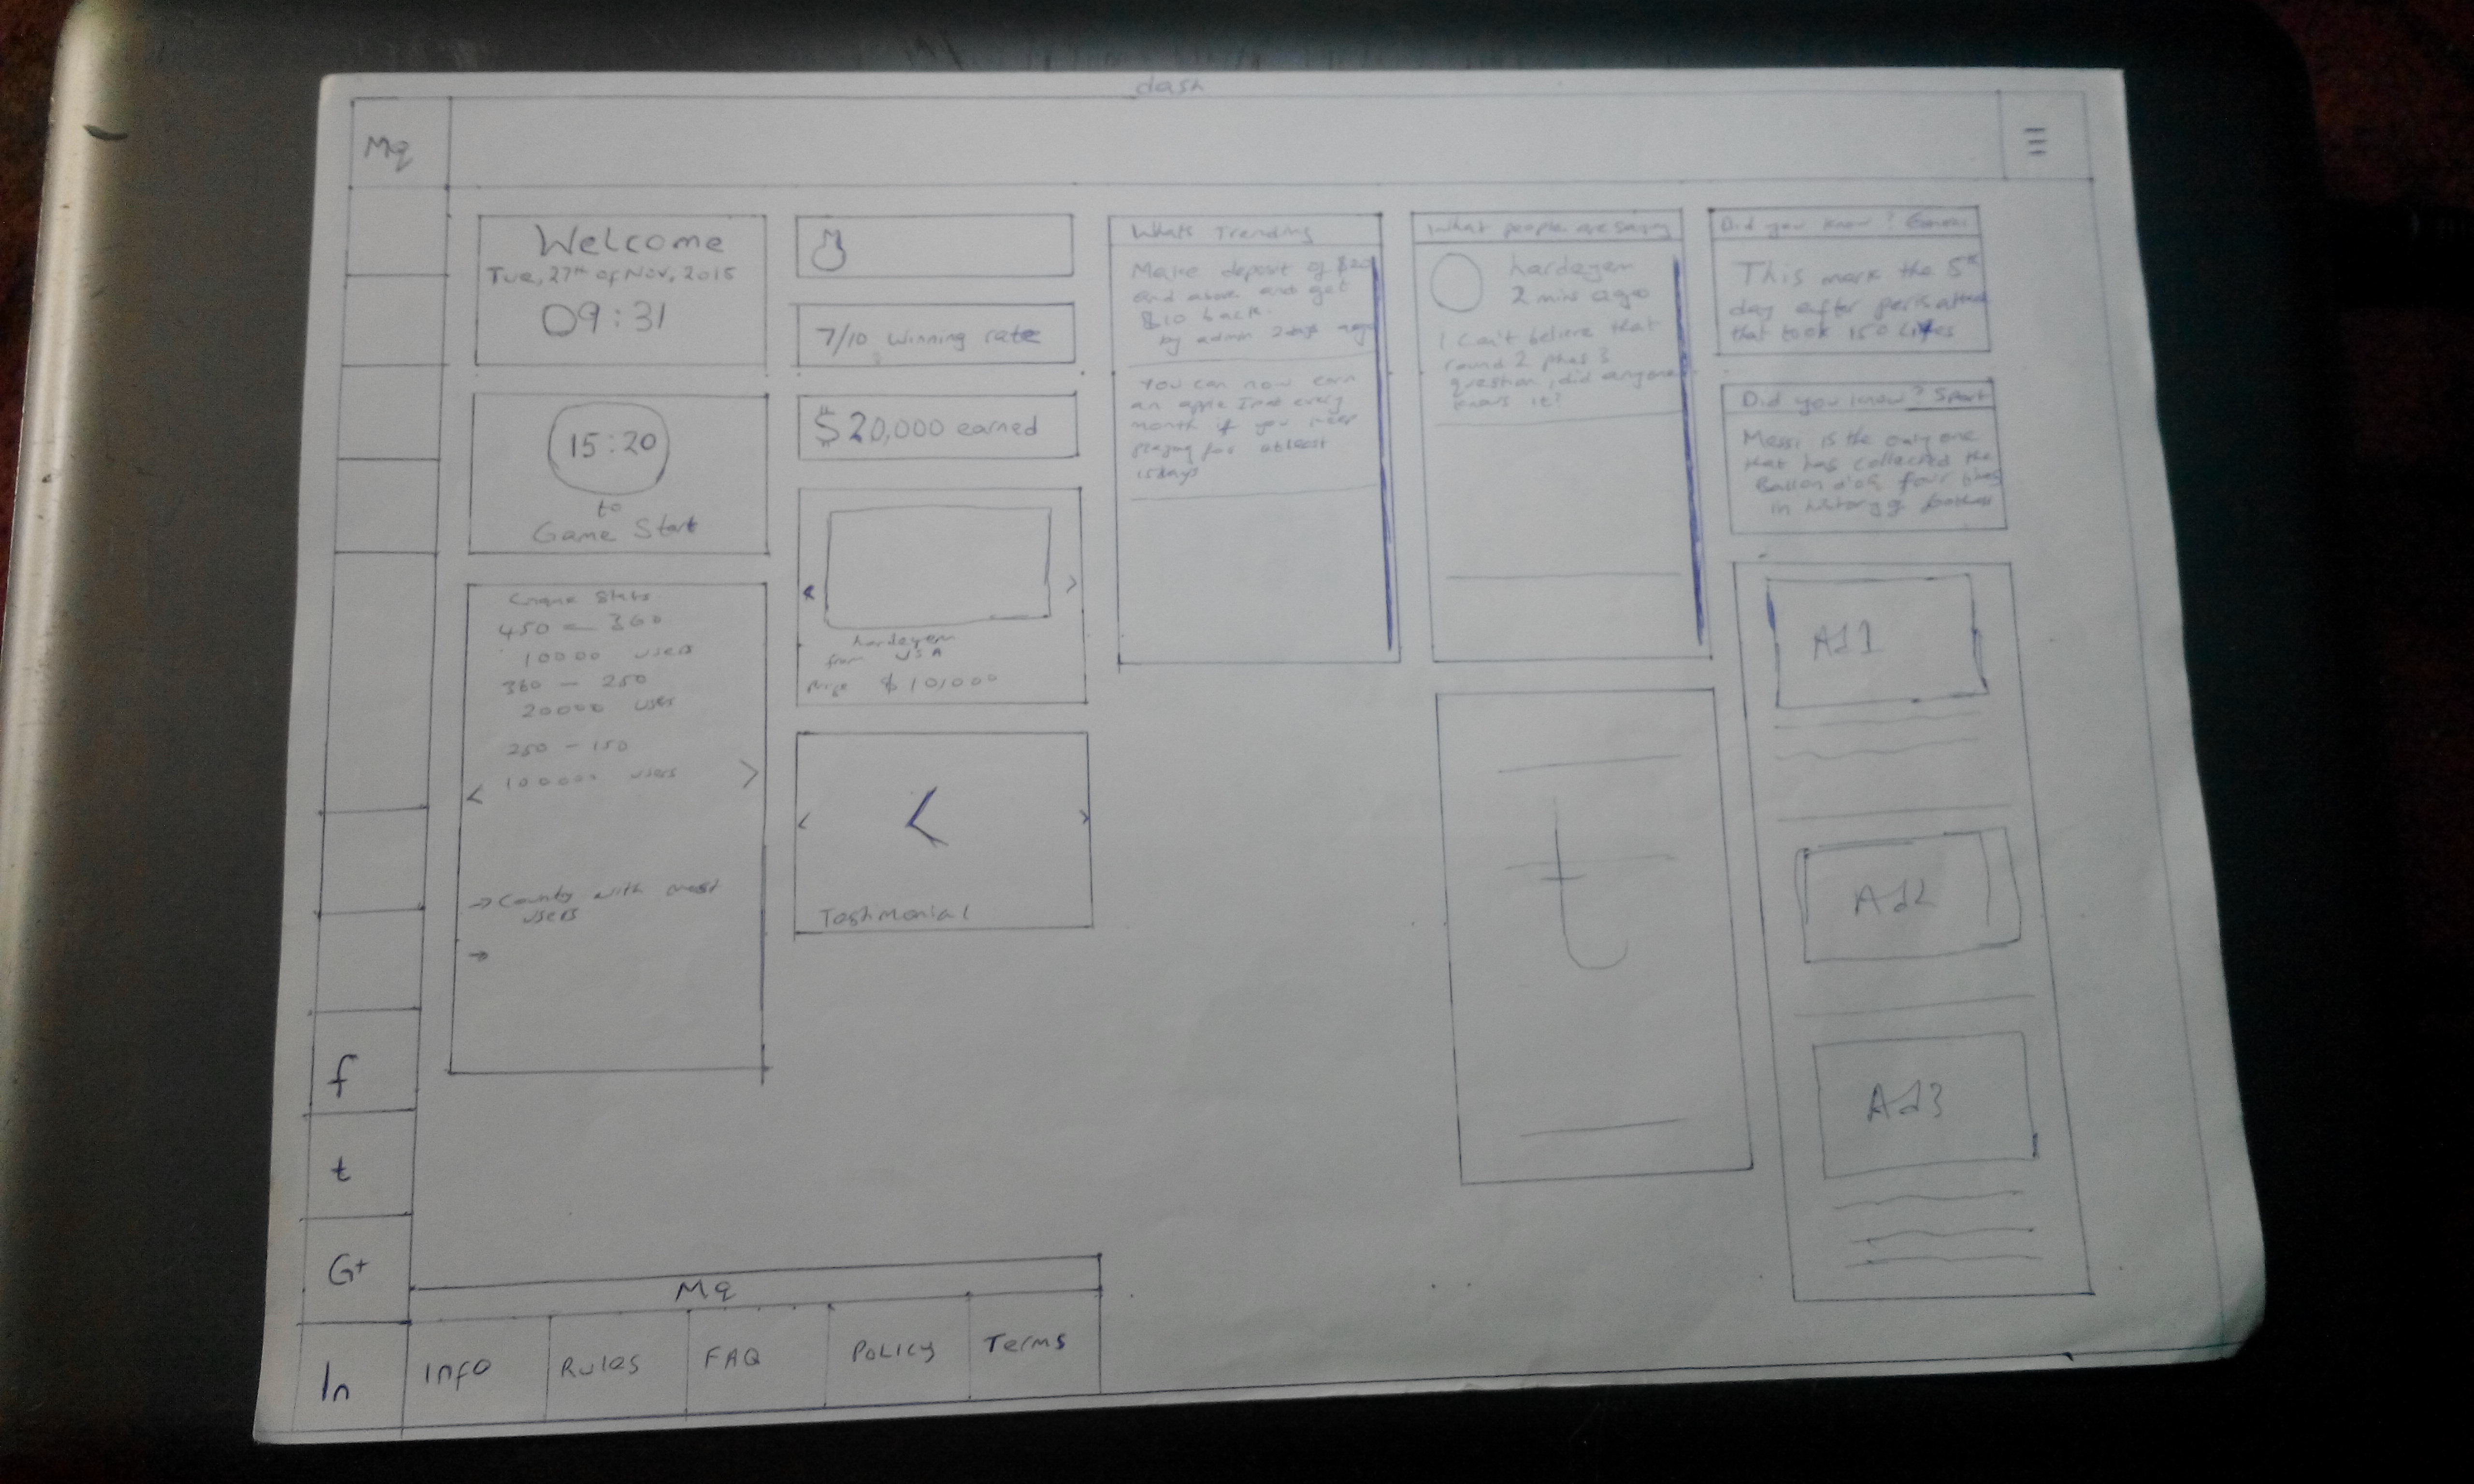 dash
Mq
Welcome
Tue, 27th of Nov, 2015
09:31
15:20
to
Game Start
Game Stats
450 - 360
10000 users
360 - 250
20000 users
250 - 150
100000 users
→ Country with most
users
→
7/10 winning rate
$20,000 earned
hardeyem
from USA
Prize $10,000
Testimonial
Whats Trending
Make deposit of
and above and get
$10 back.
by admin 2days ago
You can now earn
an apple every
month if you keep
playing for atleast
15days
What people are saying
hardeyem
2 mins ago
I can't believe that
round 2 phas 3
question, did anyone
knows it?
Did you know?
This mark the 5th
day after paris attack
that took 150 Lives
Did you know? Sport
Messi is the only one
that has collected the
Ballon d'or four times
in history of
Ad1
t
Ad2
Ad3
f
t
G+
In
Mq
Info
Rules
FAQ
Policy
Terms